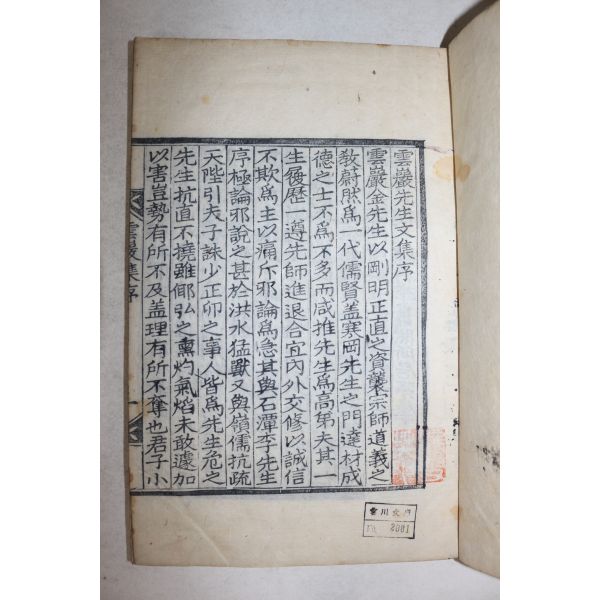 雲巖先生文集序
雲巖金先生以剛明正直之資襲宗師道義之
敎蔚然爲一代儒賢盖寒岡先生之門達材成
德之士不爲不多而咸推先生爲高第夫其一
生履歷一遵先師進退合宜內外交修以誠信
不欺爲主以痛斥邪論爲急其與石潭李先生
序極論邪說之甚於洪水猛獸又與嶺儒抗疏
天陛引夫子誅少正卯之事人皆爲先生危之
先生抗直不撓雖鄭弘之熏灼氣焰未敢遽加
以害豈勢有所不及盖理有所不奪也君子小
雲巖集序
一
雲川文庫
2001